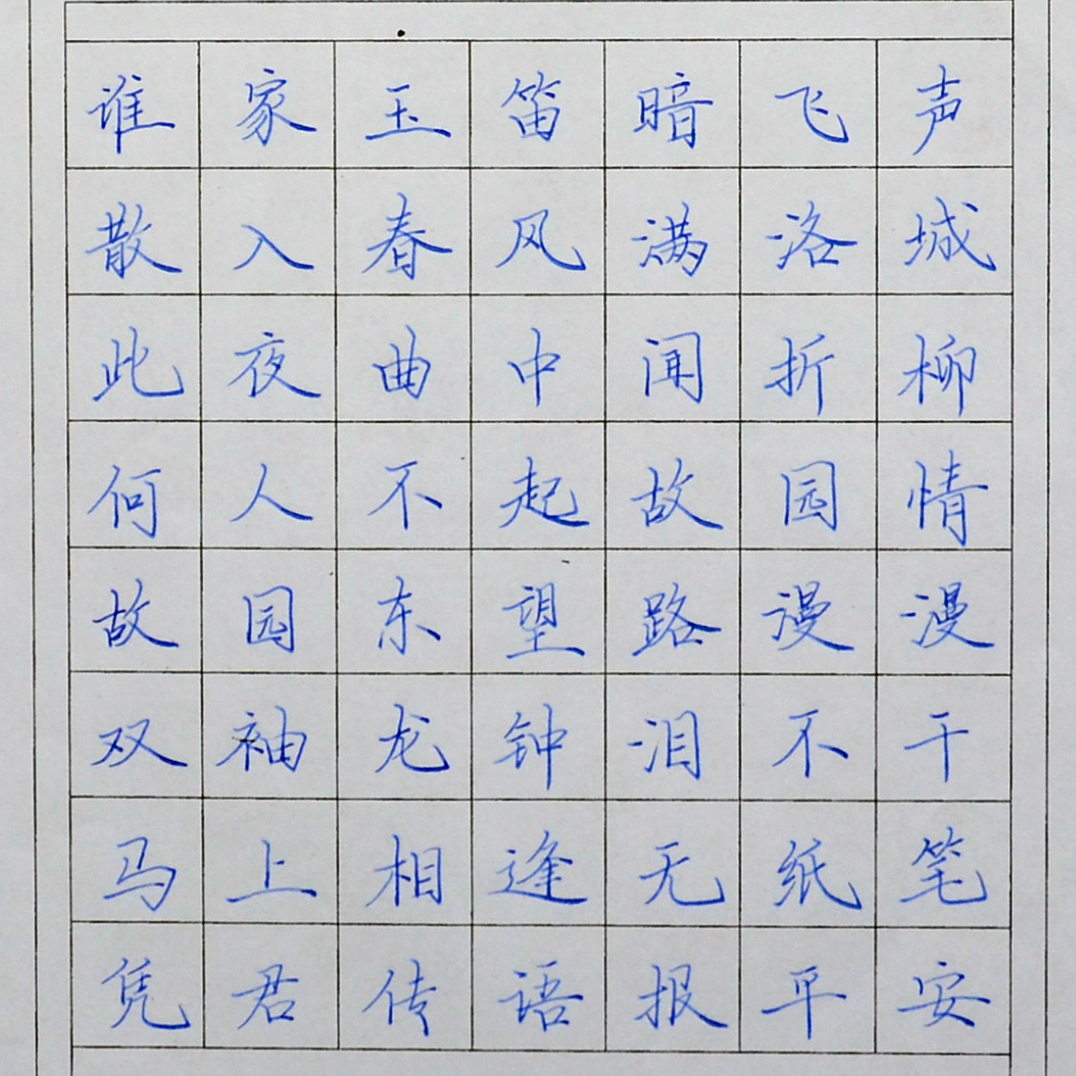 谁家玉笛暗飞声
散入春风满洛城
此夜曲中闻折柳
何人不起故园情
故园东望路谩漫
双袖龙钟泪不干
马上相逢无纸笔
凭君传语报平安